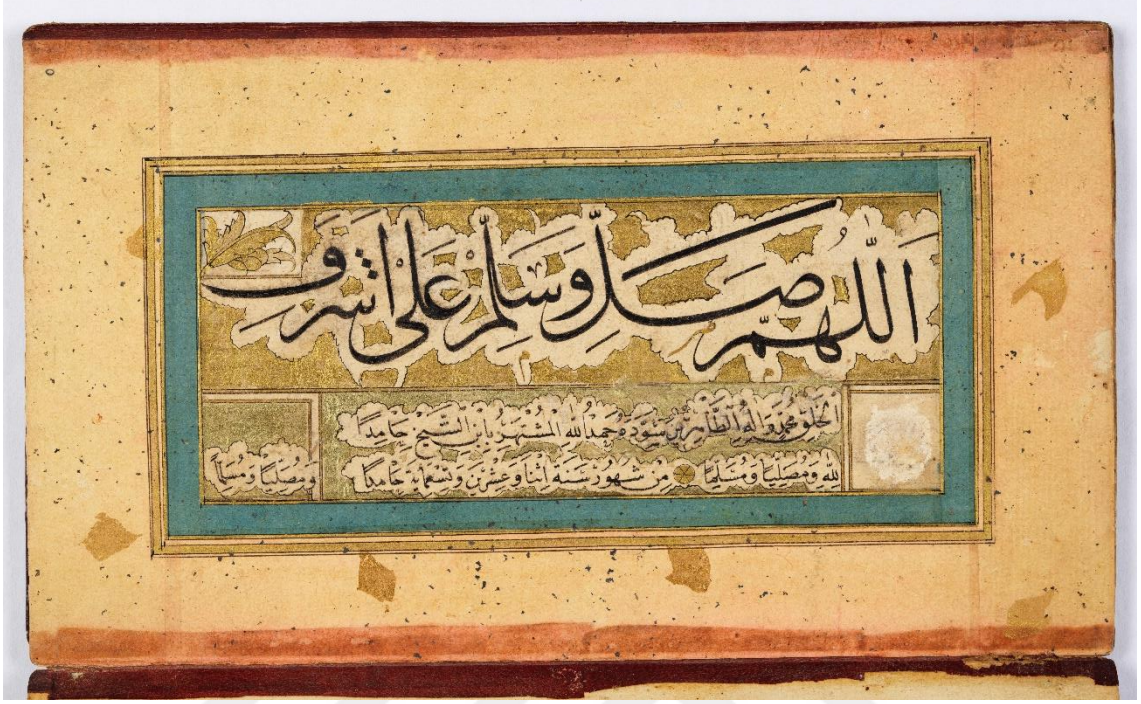 اَللّٰهُمَّ صَلِّ وَسَلِّمْ عَلٰى اَشْرَفِ
الخلق محمد واله الطاهرين سوده حمد الله المشتهر بابن الشيخ حامدا
لله ومصليا ومسلما من شهور سنة اثنا وعشرين وتسعمائة حامدا ومصليا ومسلما